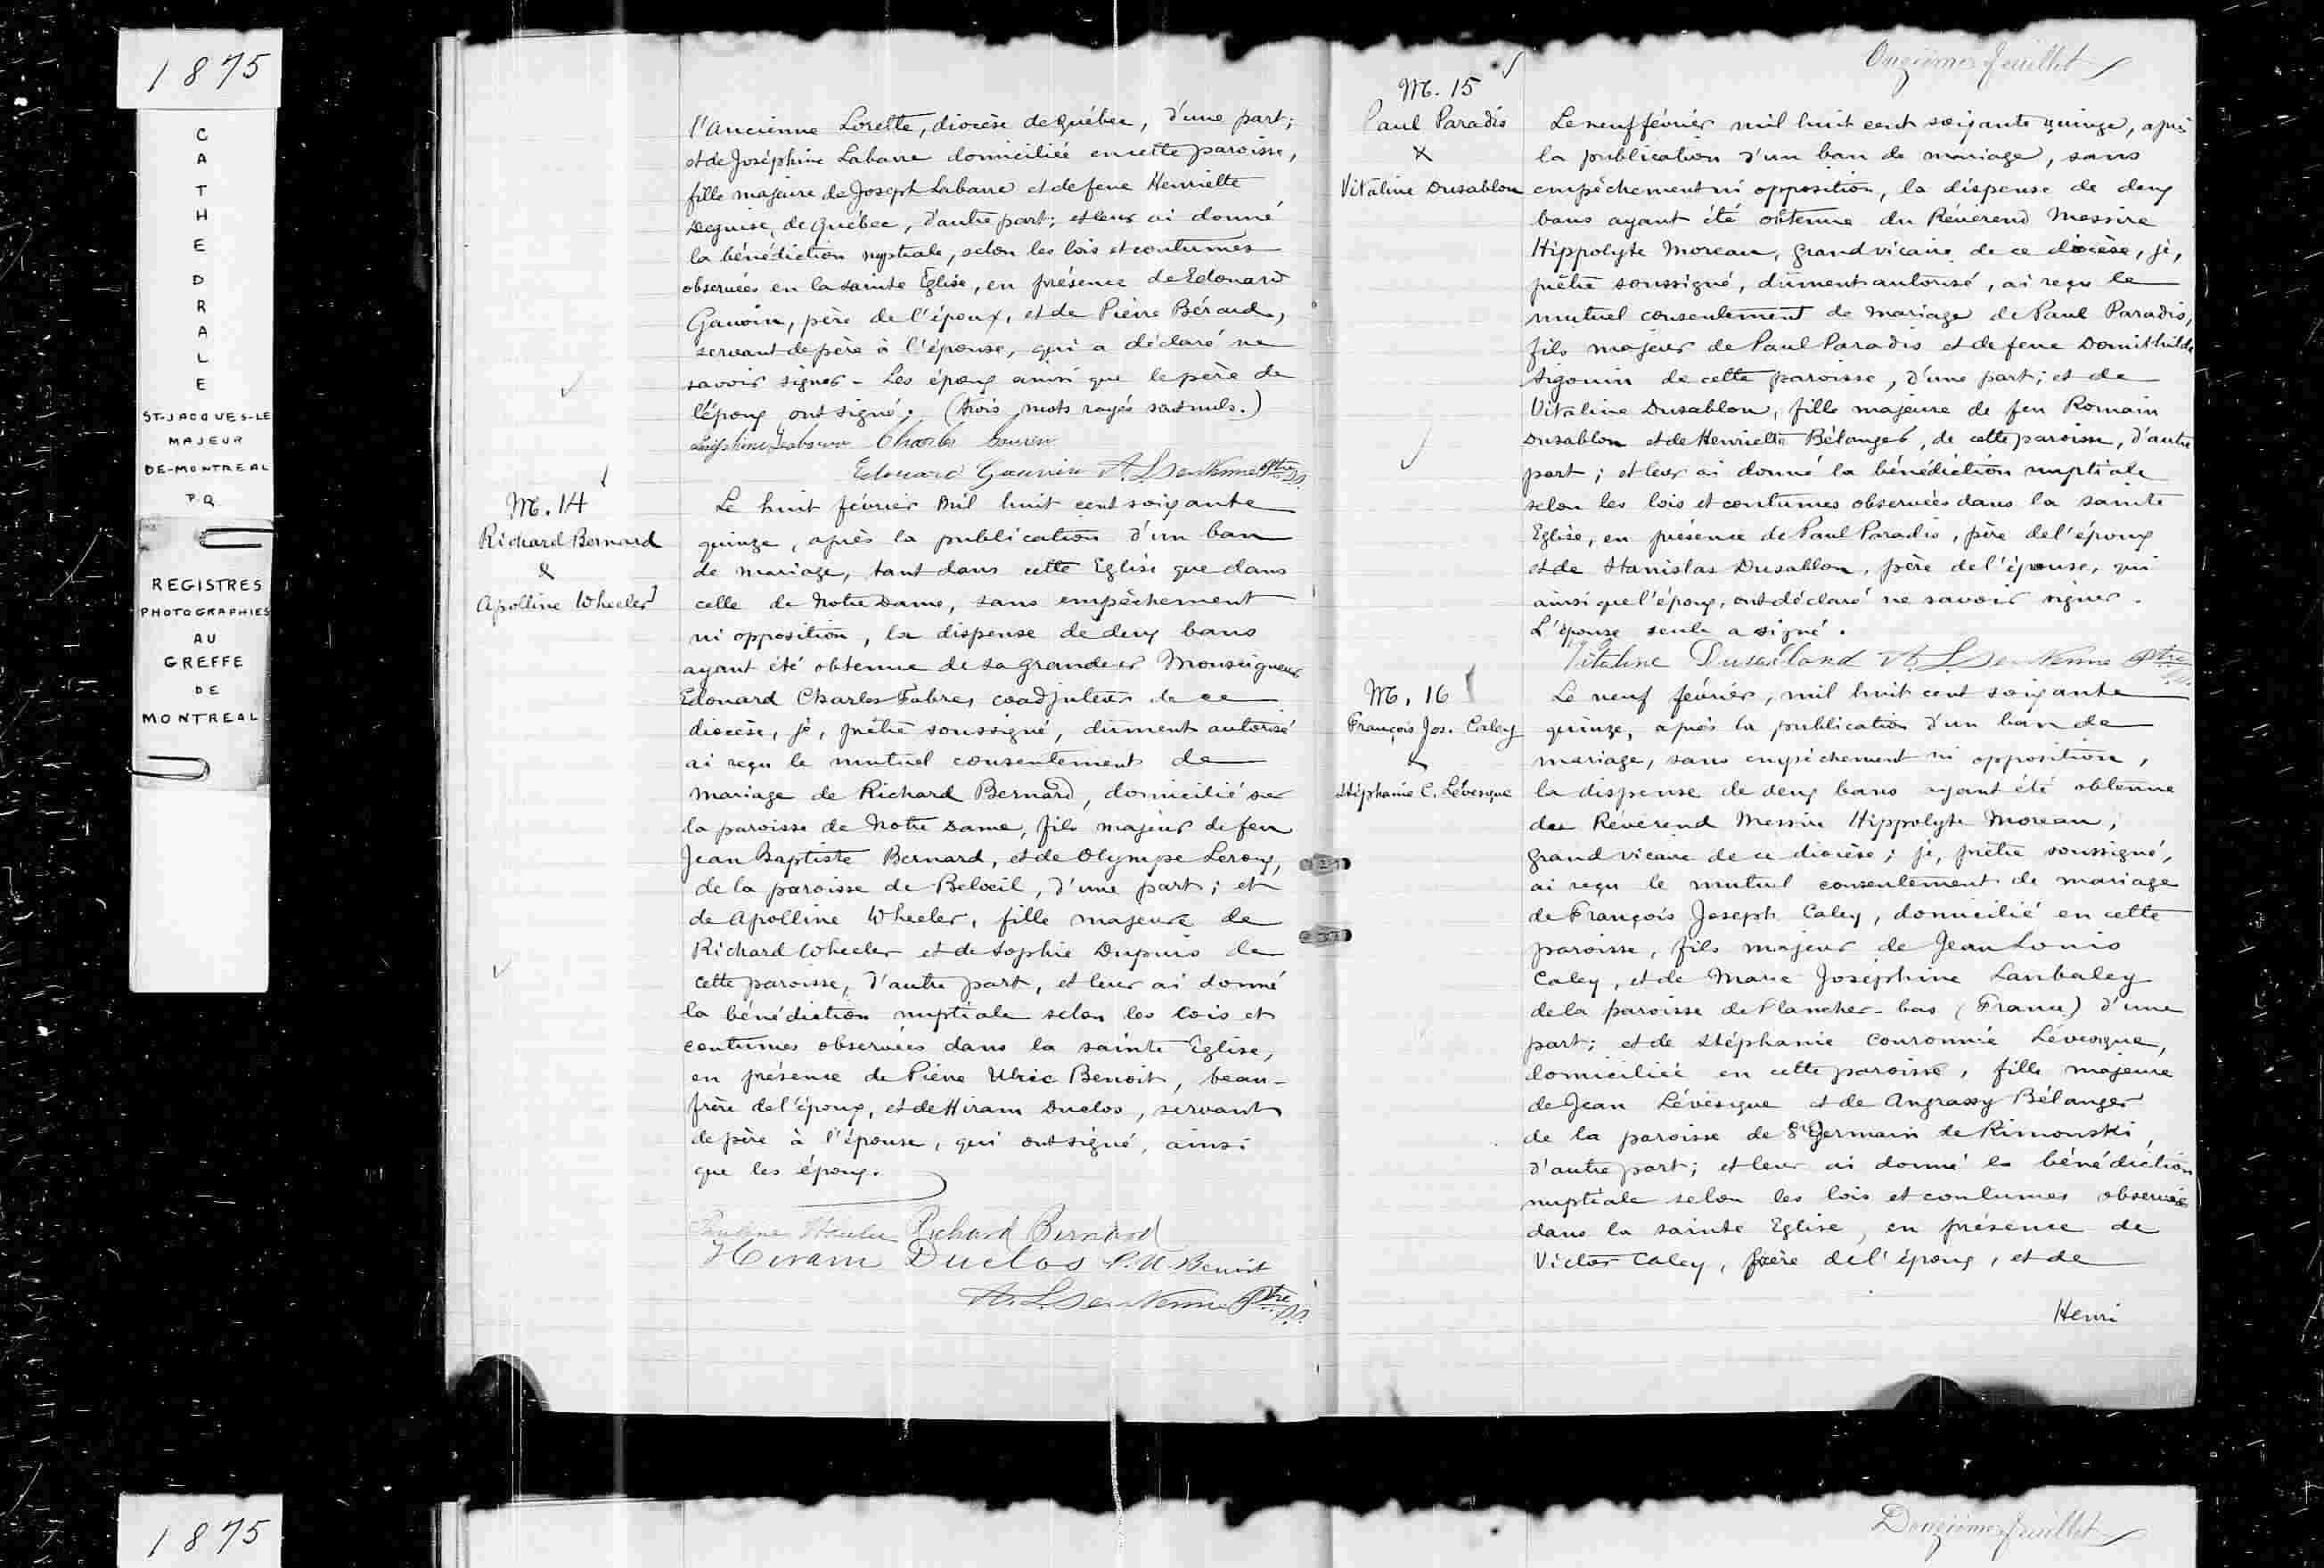 1875
CATHEDRALE
ST-JACQUES-LE
MAJEUR
DE-MONTREAL
P.Q
REGISTRES
PHOTOGRAPHIES
AU
GREFFE
DE
MONTREAL
l'Ancienne Lorette, diocèse de Québec, d'une part;
et de Joséphine Labarre domiciliée en cette paroisse,
fille majeure de Joseph Labarre et de feue Henriette
Deguise, de Québec, d'autre part; et leur ai donné
la bénédiction nuptiale, selon les lois et coutumes
observées en la sainte Eglise, en présence de Edouard
Gauvin, père de l'époux, et de Pierre Bérard,
servant de père à l'épouse, qui a déclaré ne
savoir signer - Les époux ainsi que le père de
l'époux ont signé. (trois mots rayés sont nuls.)
Joséphine Labarre Charles Gauvin
Edouard Gauvin Ptre
M. 14
Richard Bernard
&
Apolline Wheeler
Le huit février mil huit cent soixante
quinze, après la publication d'un ban
de mariage, tant dans cette Eglise que dans
celle de Notre Dame, sans empêchement
ni opposition, la dispense de deux bans
ayant été obtenue de sa grandeur Monseigneur
Edouard Charles Fabres coadjuteur de ce
diocèse, je, prêtre soussigné, dûment autorisé
ai reçu le mutuel consentement de
mariage de Richard Bernard, domicilié sur
la paroisse de Notre Dame, fils majeur de feu
Jean Baptiste Bernard, et de Olympe Leroux,
de la paroisse de Beloeil, d'une part; et
de Apolline Wheeler, fille majeure de
Richard Wheeler et de Sophie Dupuis de
cette paroisse, d'autre part, et leur ai donné
la bénédiction nuptiale selon les lois et
coutumes observées dans la sainte Eglise,
en présence de Pierre Ulric Benoit, beau-
frère de l'époux, et de Hiram Duclos, servant
de père à l'épouse, qui ont signé, ainsi
que les époux.
Wheeler Richard Bernard
Hiram Duclos P.U. Benoit
Ptre
Onzième feuillet
M. 15
Paul Paradis
X
Vitaline Dusablon
Le neuf février mil huit cent soixante quinze, après
la publication d'un ban de mariage, sans
empêchement ni opposition, la dispense de deux
bans ayant été obtenue du Révérend Messire
Hippolyte Moreau, grand vicaire de ce diocèse, je,
prêtre soussigné, dûment autorisé, ai reçu le
mutuel consentement de mariage de Paul Paradis,
fils majeur de Paul Paradis et de feue Domithilde
Sigouin de cette paroisse, d'une part; et de
Vitaline Dusablon, fille majeure de feu Romain
Dusablon et de Henriette Bélanger, de cette paroisse, d'autre
part; et leur ai donné la bénédiction nuptiale
selon les lois et coutumes observées dans la sainte
Eglise, en présence de Paul Paradis, père de l'époux
et de Stanislas Dusablon, père de l'épouse, qui
ainsi que l'époux, ont déclaré ne savoir signer.
L'épouse seule a signé.
Vitaline Dusabland Ptre
M. 16
François Jos. Caley
&
Stéphanie C. Lévesque
Le neuf février, mil huit cent soixante
quinze, après la publication d'un ban de
mariage, sans empêchement ni opposition,
la dispense de deux bans ayant été obtenue
du Révérend Messire Hippolyte Moreau,
grand vicaire de ce diocèse; je, prêtre soussigné,
ai reçu le mutuel consentement de mariage
de François Joseph Caley, domicilié en cette
paroisse, fils majeur de Jean Louis
Caley, et de Marie Joséphine Lanbaley
de la paroisse de Plancher-bas (France) d'une
part; et de Stéphanie Couronnée Lévesque,
domiciliée en cette paroisse, fille majeure
de Jean Lévesque et de Angrassy Bélanger
de la paroisse de St Germain de Rimouski,
d'autre part; et leur ai donné la bénédiction
nuptiale selon les lois et coutumes observées
dans la sainte Eglise, en présence de
Victor Caley, frère de l'époux, et de
Henri
1875
Douzième feuillet